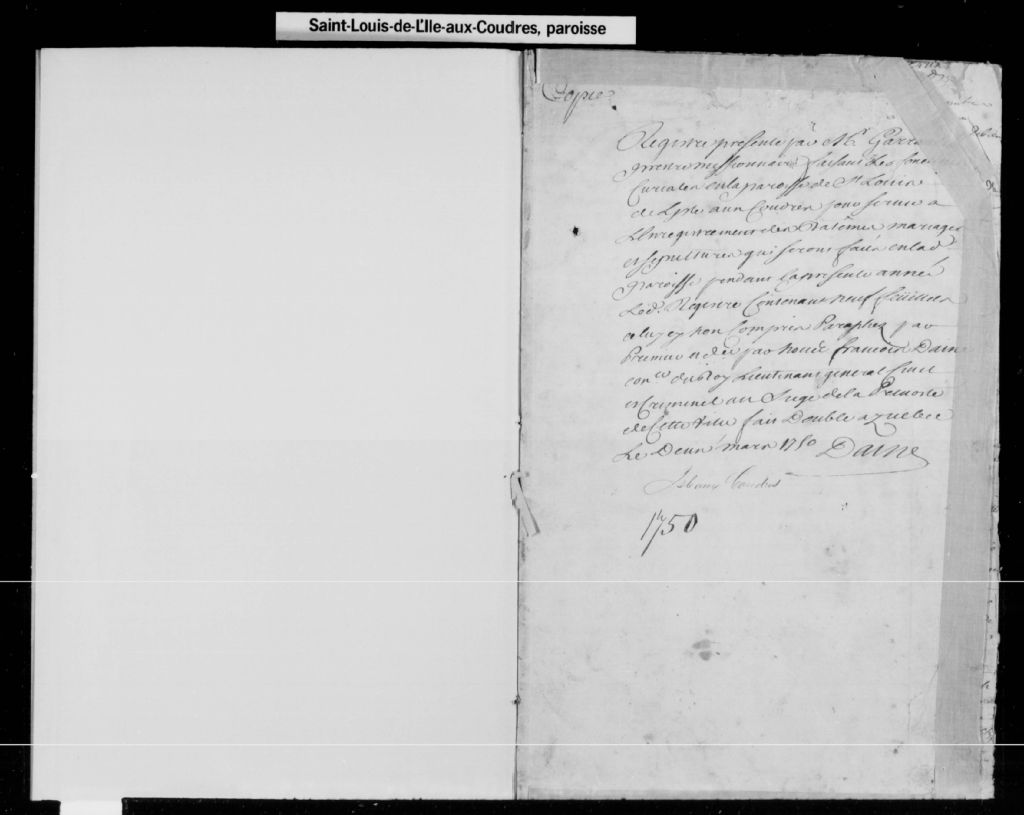 Saint-Louis-de-L'Ile-aux-Coudres, paroisse
Copie
Registre presenté par Mr. Garre
prestre missionnaire faisant Les fonc
Curiales en la paroisse de St. Louis
de Lisle aux Coudres pour servir a
L'Enregistrement des Batêmes mariages
et sepultures qui seront faits en lad
Paroisse pendant la presente année
Led. Registre Contenant neuf feüillets
celuy cy non Compris Paraphez par
Premier et der par nous françois Daine
conser du Roy Lieutenant general Civil
et Criminel au Siege de la Prevosté
de Cette Ville fait Double a Quebec
Le Deux mars 1750 Daine
Isle aux Coudres
1750